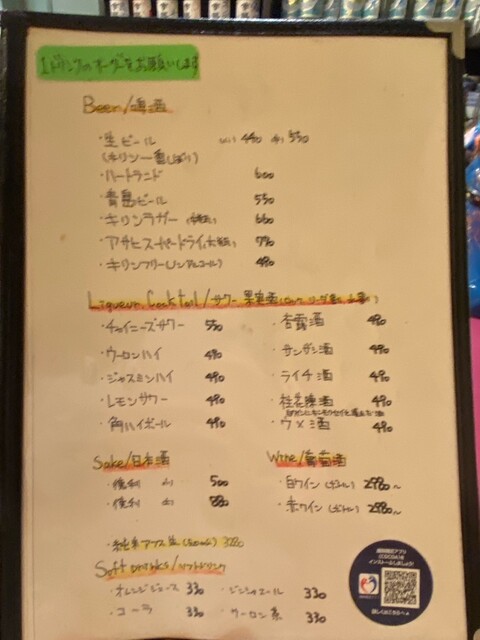 1ドリンクのオーダーをお願いします
Beer/啤酒
・生ビール (小) 490 (中) 550
(キリン一番しぼり)
・ハートランド 600
・青島ビール 550
・キリンラガー (中瓶) 660
・アサヒスーパードライ(大瓶) 790
・キリンフリー(ノンアルコール) 490
Liqueur, Cocktail/サワー 果実酒
・チャイニーズサワー 550
・杏露酒 490
・ウーロンハイ 490
・サンザシ酒 490
・ジャスミンハイ 490
・ライチ酒 490
・レモンサワー 490
・桂花陳酒 490
・角ハイボール 490
・ウメ酒 490
Sake/日本酒
Wine/葡萄酒
・徳利 小 500
・白ワイン(ボトル) 2980~
・徳利 大 880
・赤ワイン(ボトル) 2980~
Soft Drinks/ソフトドリンク
・オレンジジュース 330
・ジンジャエール 330
・コーラ 330
・ウーロン茶 330
接触確認アプリ
(COCOA)を
インストールしましょう!
詳しくはこちらへ